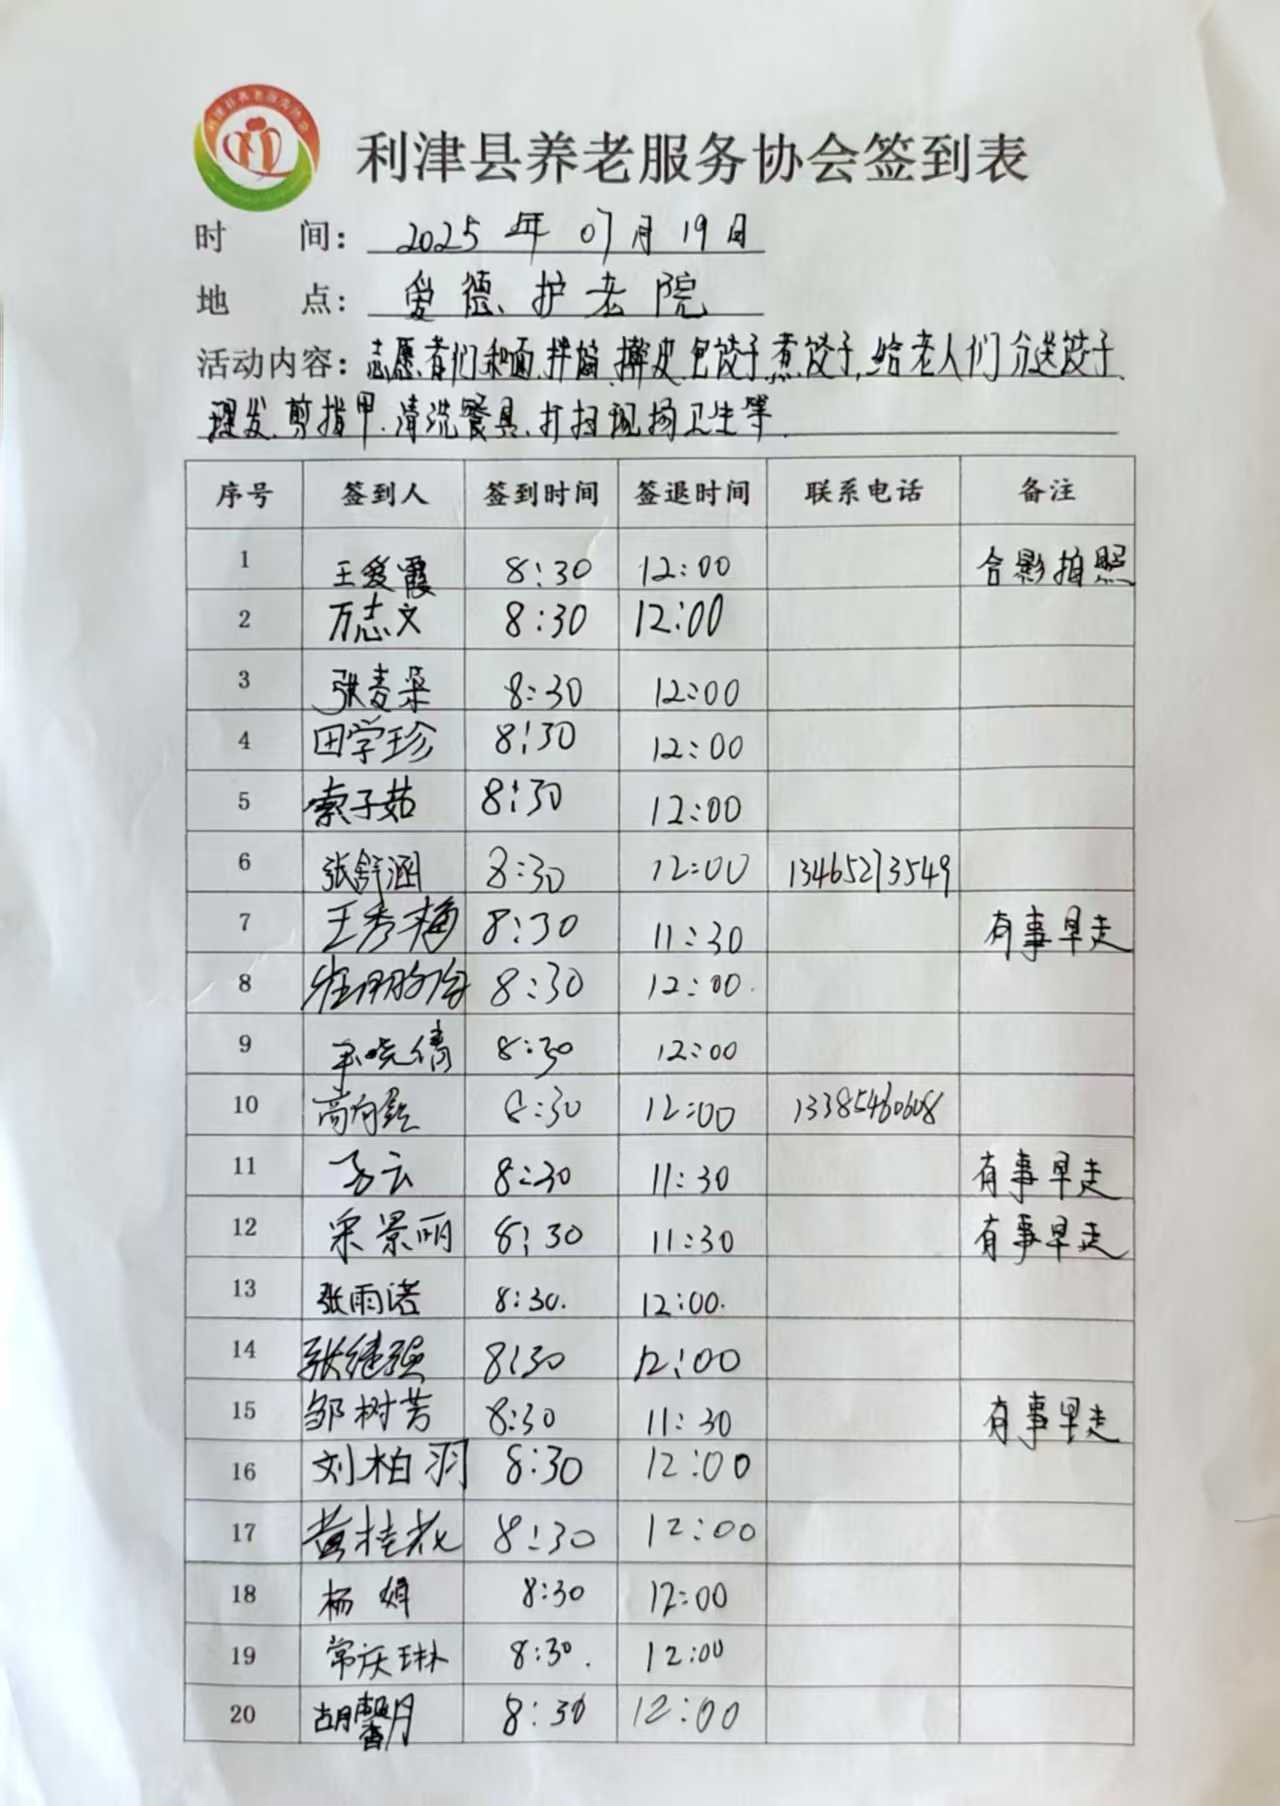 利津县养老服务协会签到表
时 间： 2025年07月19日
地 点： 爱德护老院
活动内容：志愿者们和面、拌馅、擀皮、包饺子、煮饺子，给老人们分送饺子、
理发、剪指甲、清洗餐具、打扫现场卫生等。
序号 签到人 签到时间 签退时间 联系电话 备注
1 王爱霞 8:30 12:00 合影拍照
2 万志文 8:30 12:00
3 张麦朵 8:30 12:00
4 田学珍 8:30 12:00
5 索子茹 8:30 12:00
6 张舒涵 8:30 12:00 13465273549
7 王秀梅 8:30 11:30 有事早走
8 8:30 12:00.
9 晓倩 8:30 12:00
10 高 8:30 12:00 13385460608
11 云 8:30 11:30 有事早走
12 景丽 8:30 11:30 有事早走
13 张雨诺 8:30. 12:00.
14 张继强 8:30 12:00
15 邹树芳 8:30 11:30 有事早走
16 刘柏羽 8:30 12:00
17 黄桂花 8:30 12:00
18 杨娟 8:30 12:00
19 常庆琳 8:30. 12:00
20 胡馨月 8:30 12:00